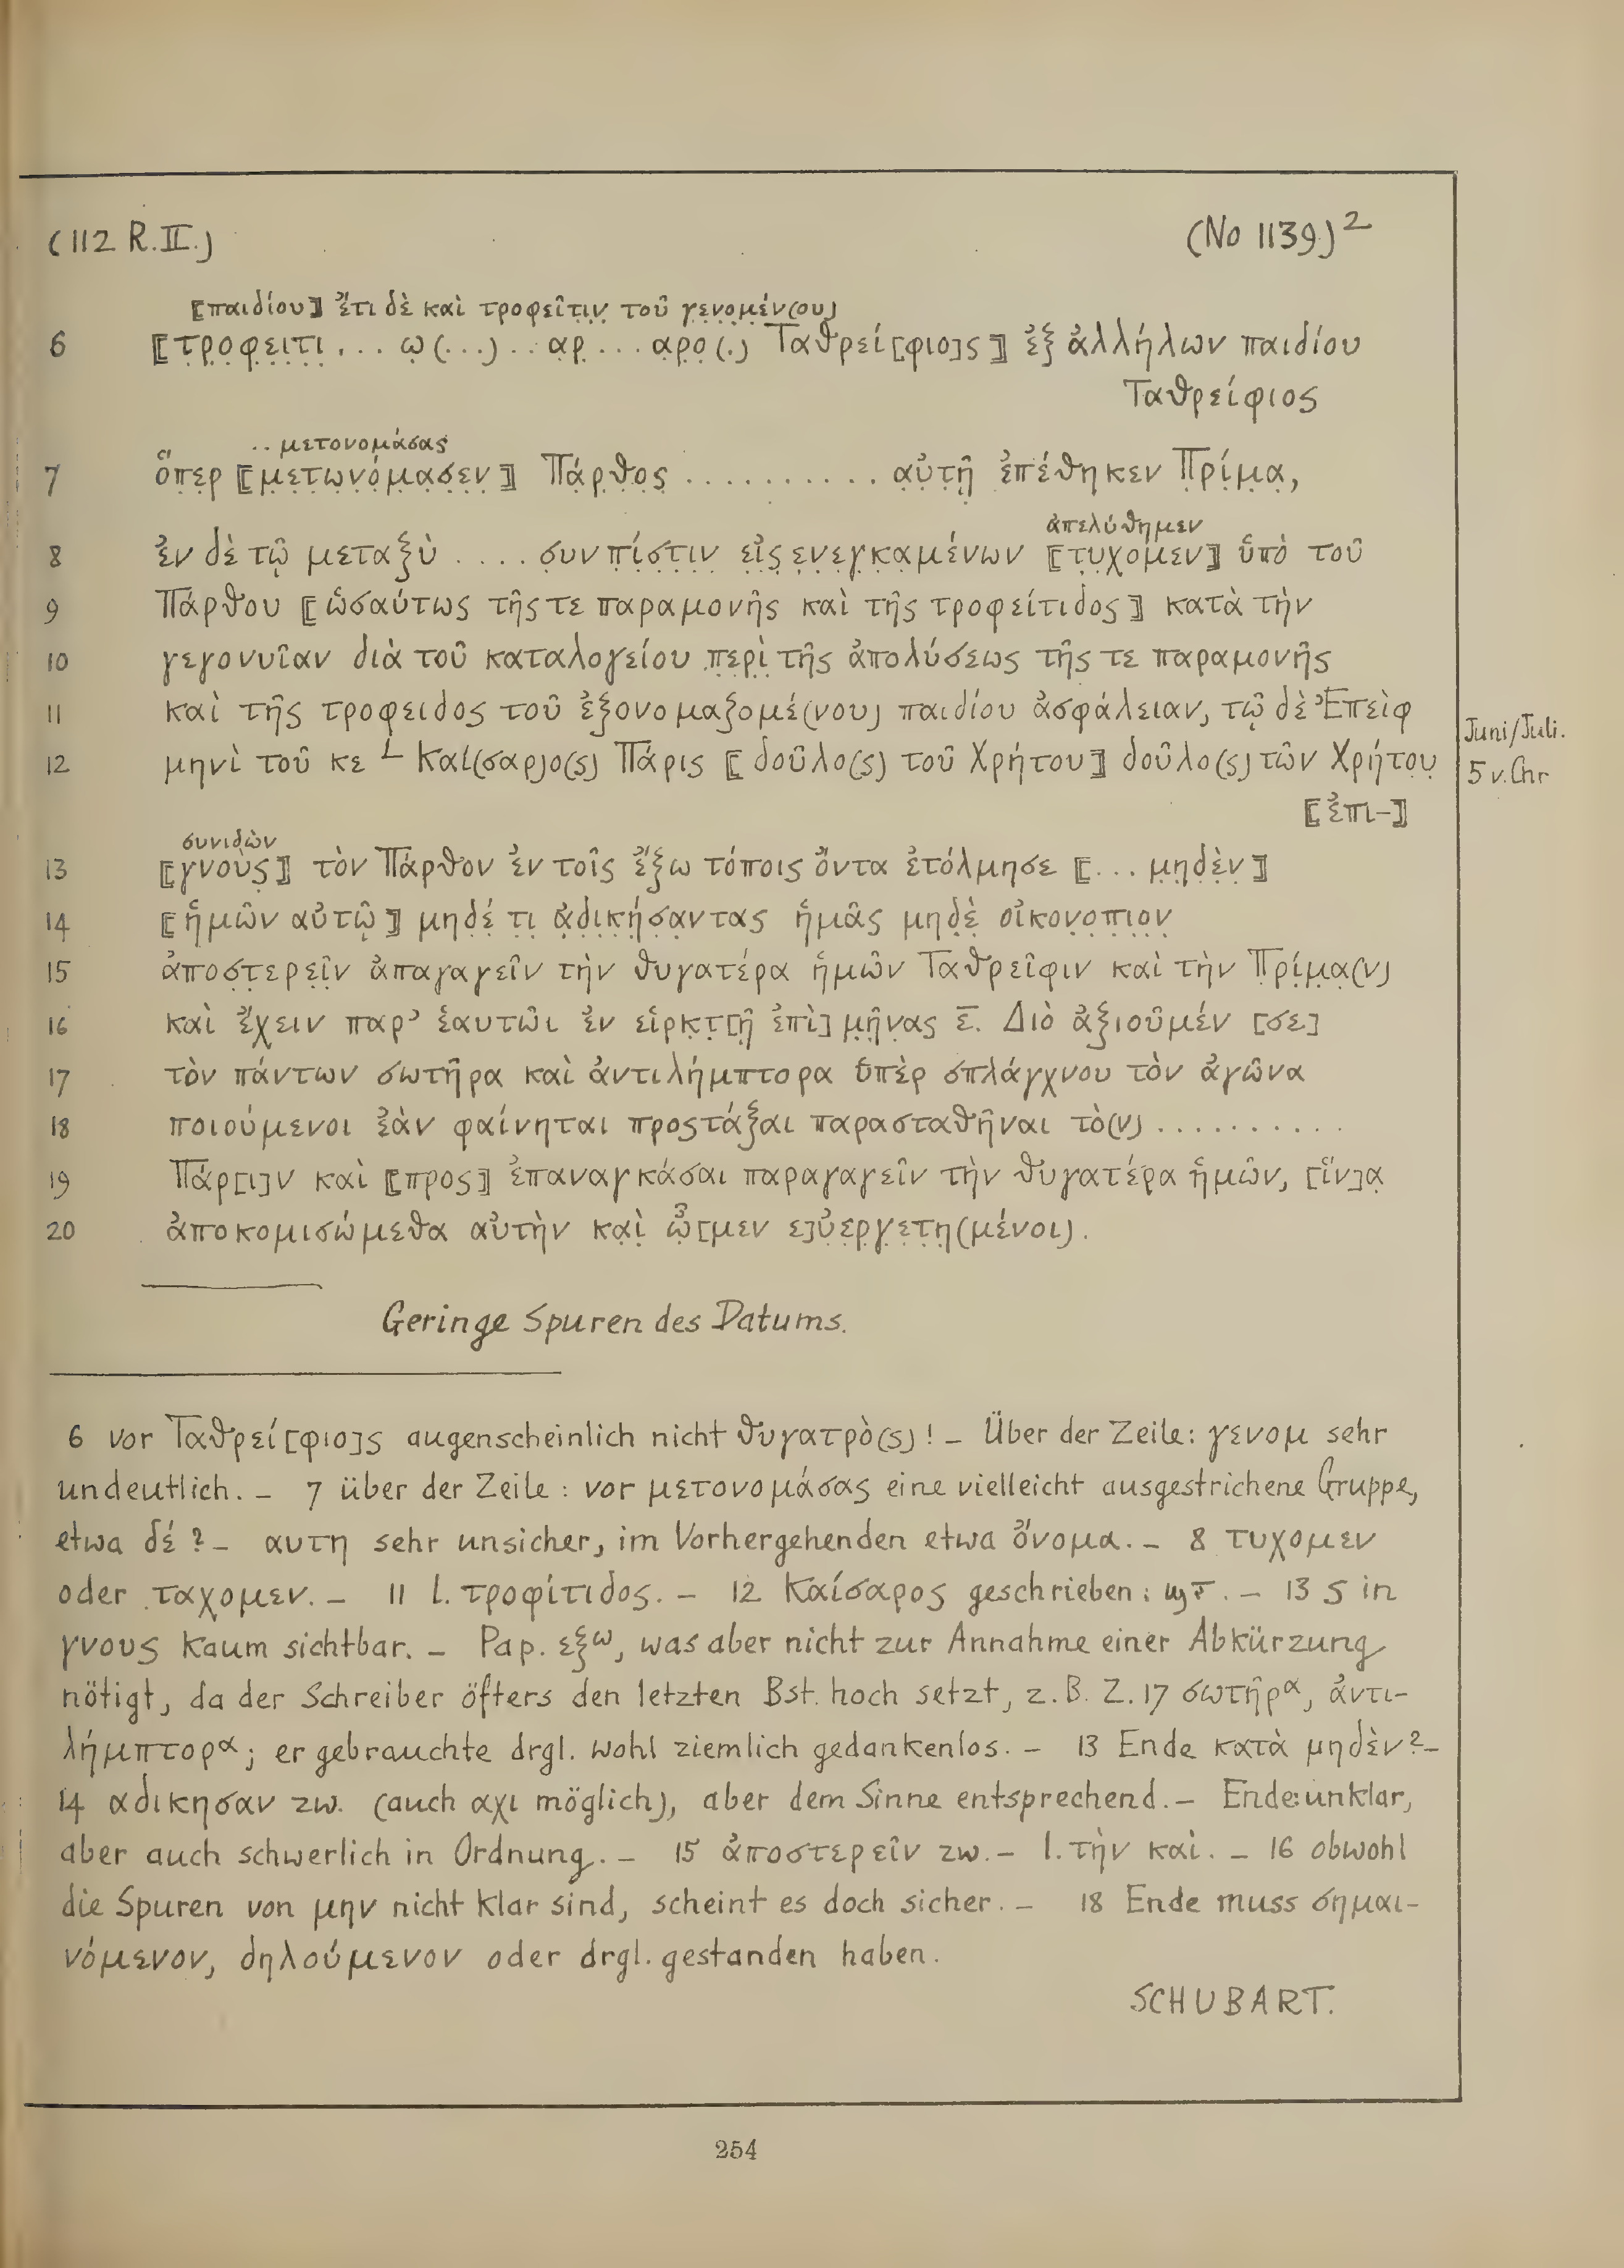 (112 R.II.)
(No 1139)²
⟦παιδίου⟧ ἔτι δὲ καὶ τροφεῖτ̣ι̣ν̣ τοῦ γ̣ε̣ν̣ο̣μ̣έν(ου)
6 ⟦τ̣ρ̣ο̣φ̣ε̣ι̣τ̣ι̣ . . . ω̣(. . .) . . α̣ρ̣ . . . α̣ρ̣ο̣(.) Ταθρεί[φιο]ς⟧ ἐξ ἀλλήλων παιδίου
Ταθρείφιος
. . μετονομάσας
7 ὅπ̣ε̣ρ̣ ⟦μ̣ε̣τ̣ω̣ν̣ό̣μ̣α̣σ̣ε̣ν̣⟧ Π̣ά̣ρ̣θ̣ο̣ς̣ . . . . . . . . . . α̣ὐ̣τ̣ῇ̣ ἐπέθηκεν Π̣ρ̣ί̣μ̣α̣,
ἀπελύθημεν
8 ἐν δὲ τῷ μεταξὺ . . . . σ̣υν π̣ί̣σ̣τ̣ι̣ν̣ εἰ̣ς̣ ε̣ν̣ε̣γ̣κ̣α̣μένων ⟦τ̣υ̣χο̣μεν⟧ ὑπὸ τοῦ
9 Πάρθου ⟦ὡσαύτως τῆς τε παραμονῆς καὶ τῆς τροφείτιδος⟧ κατὰ τὴν
10 γεγονυῖαν διὰ τοῦ καταλογείου π̣ε̣ρὶ̣ τῆς ἀπολύσεως τῆς τε παραμονῆς
11 καὶ τῆς τροφειδος τοῦ ἐξονομαζομέ(νου) παιδίου ἀσφάλειαν, τῷ δὲ Ἐπεὶφ
Juni/Juli.
12 μηνὶ τοῦ κε L Καί(σαρ)ο(ς) Πάρις ⟦δοῦλο(ς) τοῦ Χρήτου⟧ δοῦλο(ς) τῶν Χρήτο̣υ̣
5 v. Chr
⟦ἐπι-⟧
συνιδὼν
13 ⟦γνοὺς̣⟧ τὸν Πάρθον ἐν τοῖς ἔξω τόποις ὄντα ἐτόλμησε ⟦. . . μ̣η̣δ̣ὲ̣ν̣⟧
14 ⟦ἡμῶν αὐτῷ⟧ μηδ̣έ̣ τ̣ι̣ ἀ̣δ̣ι̣κ̣ή̣σ̣α̣ντας ἡμᾶς μηδ̣ὲ̣ οἰκον̣ο̣π̣ι̣ο̣ν̣
15 ἀποσ̣τ̣ε̣ρε̣ῖ̣ν ἀπαγαγεῖν τὴν θυγατέρα ἡμῶν Ταθρεῖφιν καὶ τὴν Π̣ρ̣ί̣μ̣α̣(ν)
16 καὶ ἔχειν παρ’ ἑαυτῶι ἐν εἱρκ̣τ̣[ῇ ἐπὶ] μ̣ῆ̣ν̣ας ε̅. Διὸ ἀξιοῦμέν [σε]
17 τὸν πάντων σωτῆρα καὶ ἀντιλήμπτορα ὑπὲρ σπλάγχνου τὸν ἀγῶνα
18 ποιούμενοι ἐὰν φαίνηται προςτάξαι παρασταθῆναι τὸ(ν) . . . . . . . . . .
19 Πάρ[ι]ν καὶ ⟦προς⟧ ἐπαναγκάσαι παραγαγεῖν τὴν θυγατέρα ἡμῶν, [ἵν]α̣
20 ἀποκομισώμεθα αὐτὴν κα̣ὶ̣ ὦ̣[μεν ε]ὐ̣ε̣ρ̣γ̣ε̣τ̣η̣(μένοι).
Geringe Spuren des Datums.
6 vor Ταθρεί[φιο]ς augenscheinlich nicht θυγατρὸ(ς)! – Über der Zeile: γενομ sehr
undeutlich. – 7 über der Zeile: vor μετονομάσας eine vielleicht ausgestrichene Gruppe,
etwa δέ? – αυτη sehr unsicher, im Vorhergehenden etwa ὄνομα. – 8 τυχομεν
oder ταχομεν. – 11 l. τροφίτιδος. – 12 Καίσαρος geschrieben: . – 13 ς in
γνους kaum sichtbar. – Pap. εξ^ω, was aber nicht zur Annahme einer Abkürzung
nötigt, da der Schreiber öfters den letzten Bst. hoch setzt, z.B. Z. 17 σωτῆρ^α, ἀντι-
λήμπτορ^α; er gebrauchte drgl. wohl ziemlich gedankenlos. – 13 Ende κατὰ μηδὲν? –
14 αδικησαν zw. (auch αχι möglich), aber dem Sinne entsprechend. – Ende: unklar,
aber auch schwerlich in Ordnung. – 15 ἀποστερεῖν zw. – l. τὴν καὶ. – 16 obwohl
die Spuren von μην nicht klar sind, scheint es doch sicher. – 18 Ende muss σημαι-
νόμενον, δηλούμενον oder drgl. gestanden haben.
SCHUBART.
254